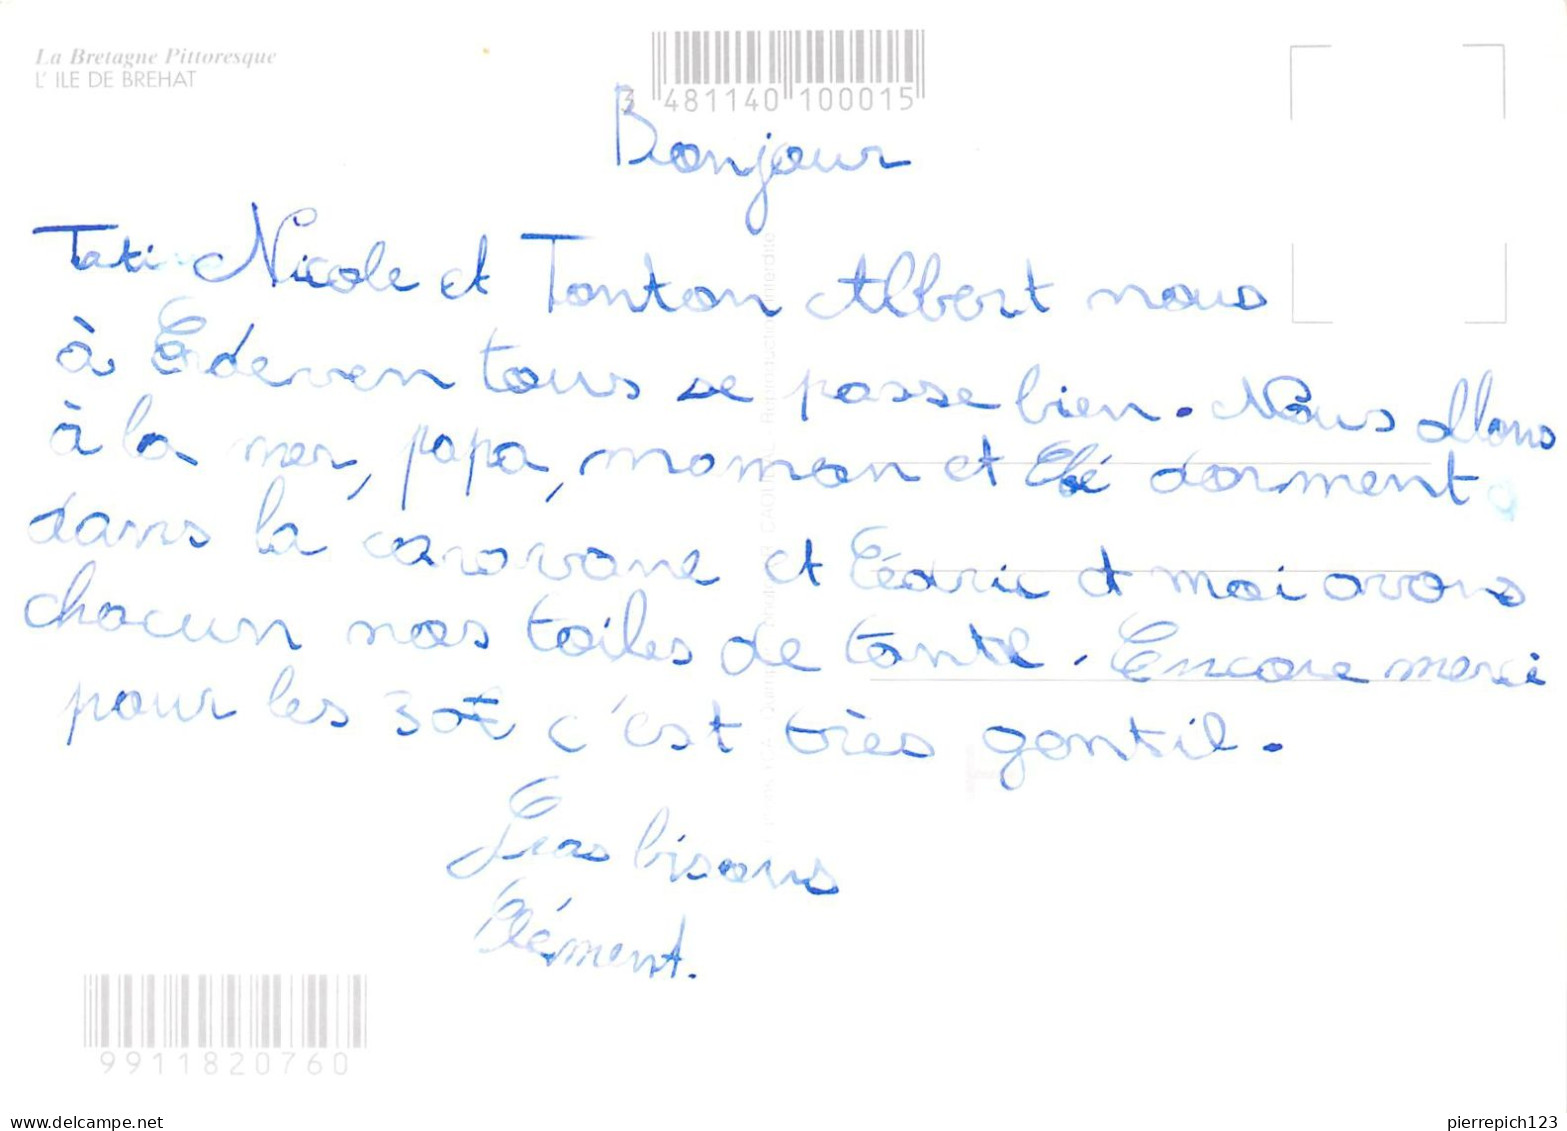 La Bretagne Pittoresque
L' ILE DE BREHAT
3 481140 100015
Bonjour
Tati Nicole et Tonton Albert nous
à Erdeven tous se passe bien. Nous allons
à la mer, papa, maman et Eloé dorment
dans la caravane et Cédric et moi avons
chacun nos toiles de tante. Encore merci
pour les 30€ c'est très gentil.
Gros bisous
Clément.
9911820760
delcampe.net
pierrepich123